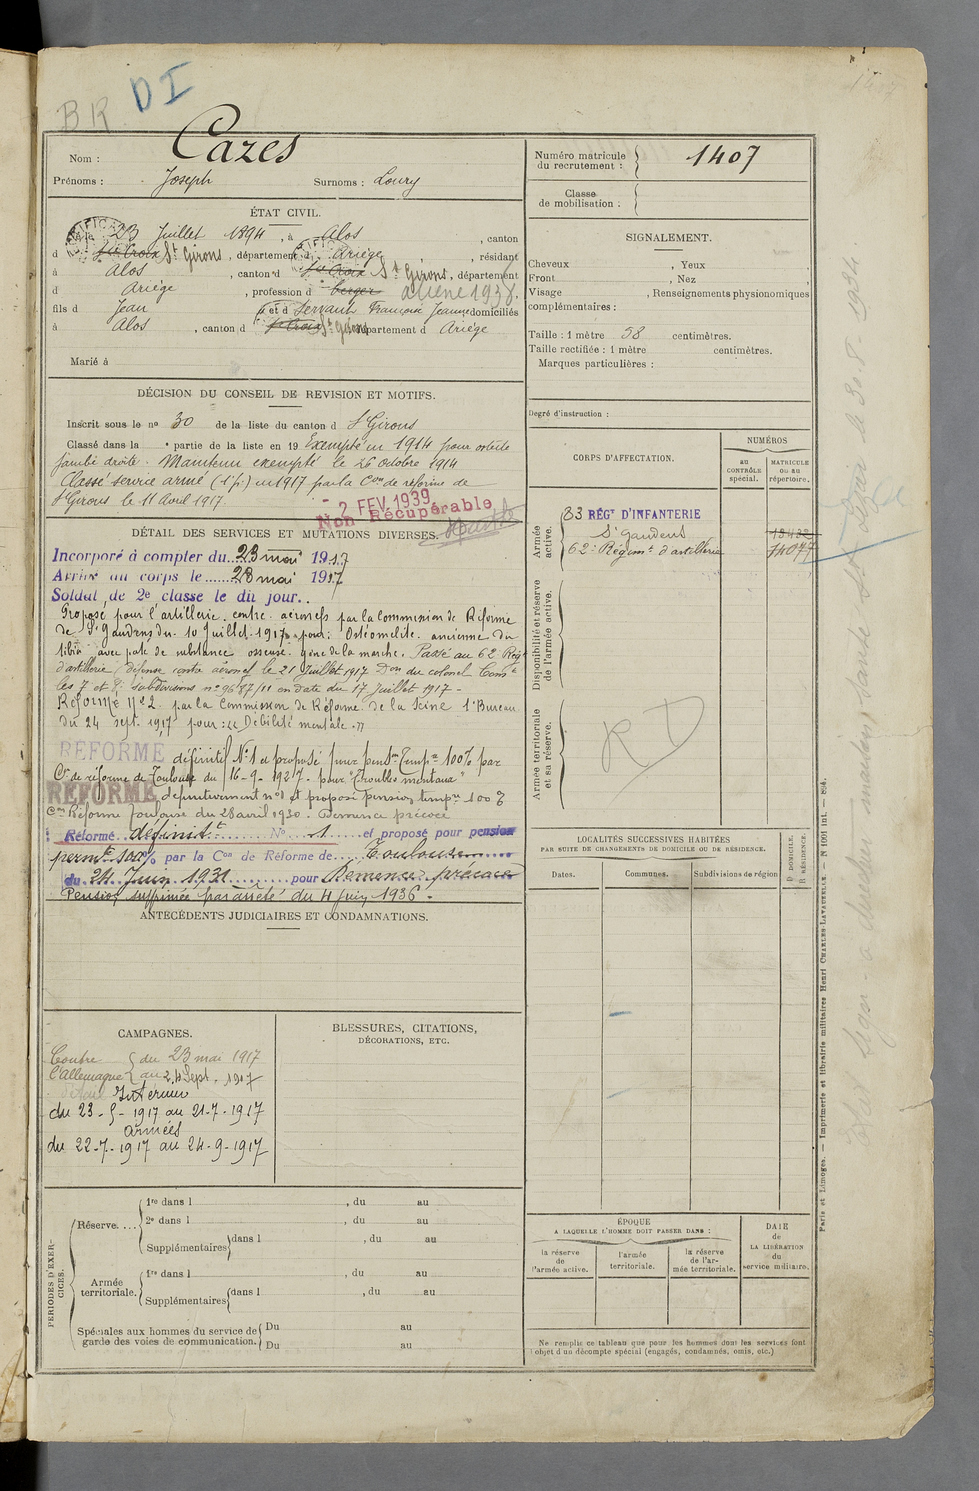 BR DI
1407
Nom : Cazes
Prénoms : Joseph Surnoms : Loury
Numéro matricule du recrutement : 1407
Classe de mobilisation :
ÉTAT CIVIL.
Né le 23 Juillet 1894, à Alos, canton
d Ste Croix St Girons, département d Ariège, résidant
à Alos, canton d Ste Croix St Girons, département
d Ariège, profession d berger aliéné 1938.
fils d Jean et d Servant Françoise Jeanne domiciliés
à Alos, canton d Ste Croix St Girons département d Ariège
Marié à
SIGNALEMENT.
Cheveux , Yeux ,
Front , Nez ,
Visage , Renseignements physionomiques
complémentaires :
Taille : 1 mètre 58 centimètres.
Taille rectifiée : 1 mètre centimètres.
Marques particulières :
Degré d'instruction :
DÉCISION DU CONSEIL DE REVISION ET MOTIFS.
Inscrit sous le no 30 de la liste du canton d St Girons
Classé dans la e partie de la liste en 19 Exempté en 1914 pour ostéite
jambe droite. Maintenu exempté le 26 octobre 1914
Classé service armé (1e p.) en 1917 par la Con de réforme de
St Girons le 11 Avril 1917.
- 2 FEV 1939
Non Récupérable
DÉTAIL DES SERVICES ET MUTATIONS DIVERSES.
Incorporé à compter du 23 mai 1917
Arrivé au corps le 28 mai 1917
Soldat de 2e classe le dit jour.
Proposé pour l'artillerie contre aéronefs par la Commission de Réforme
de St Gaudens du 10 Juillet 1917 pour : Ostéomélite ancienne du
tibia avec perte de substance osseuse gêne de la marche. Passé au 62e Régt
d'artillerie (défense contre aéronefs) le 21 Juillet 1917 Don du colonel Comt
les 7 et 8e subdivisions no 9687/11 en date du 17 Juillet 1917 -
Réformé No 2 par la Commission de Réforme de la Seine 1er Bureau
du 24 sept. 1917 pour : "Débilité mentale"
REFORMÉ définitif No 1 et proposé pour pension temp. 100% par
Con de réforme de Toulouse du 16-9-1927 - pour "Troubles mentaux"
REFORMÉ définitivement no 1 et proposé pension tempre 100%
Con Réforme Toulouse du 28 avril 1930. Démence précoce
Réformé définitt No 1 et proposé pour pension
permte 100% par la Con de Réforme de Toulouse
du 24 Juin 1931 pour Démence précoce
Pension supprimée par arrêté du 4 Juin 1936.
CORPS D'AFFECTATION.
NUMÉROS
au CONTRÔLE spécial.
MATRICULE ou au répertoire.
Armée active.
83 RÉGt D'INFANTERIE
St Gaudens
62e Régimt d'artillerie
14077
Disponibilité et réserve de l'armée active.
Armée territoriale et sa réserve.
RD
ANTÉCÉDENTS JUDICIAIRES ET CONDAMNATIONS.
LOCALITÉS SUCCESSIVES HABITÉES
PAR SUITE DE CHANGEMENTS DE DOMICILE OU DE RÉSIDENCE.
Dates. Communes. Subdivisions de région
D DOMICILE. R RÉSIDENCE.
CAMPAGNES.
Contre l'Allemagne du 23 mai 1917
au 24 Sept. 1917
Intérieur
du 23-5-1917 au 21-7-1917
armées
du 22-7-1917 au 24-9-1917
BLESSURES, CITATIONS,
DÉCORATIONS, ETC.
PÉRIODES D'EXERCICES.
Réserve....
1re dans l , du au
2e dans l , du au
Supplémentaires dans l , du au
Armée territoriale.
1re dans l , du au
Supplémentaires dans l , du au
Spéciales aux hommes du service de garde des voies de communication.
Du au
Du au
ÉPOQUE
A LAQUELLE L'HOMME DOIT PASSER DANS :
la réserve de l'armée active.
l'armée territoriale.
la réserve de l'armée territoriale.
DATE de LA LIBÉRATION du service militaire.
Ne remplir ce tableau que pour les hommes dont les services font
l'objet d'un décompte spécial (engagés, condamnés, omis, etc.)
Paris et Limoges. — Imprimerie et librairie militaires Henri CHARLES-LAVAUZELLE. — N 1001 int. — 894.